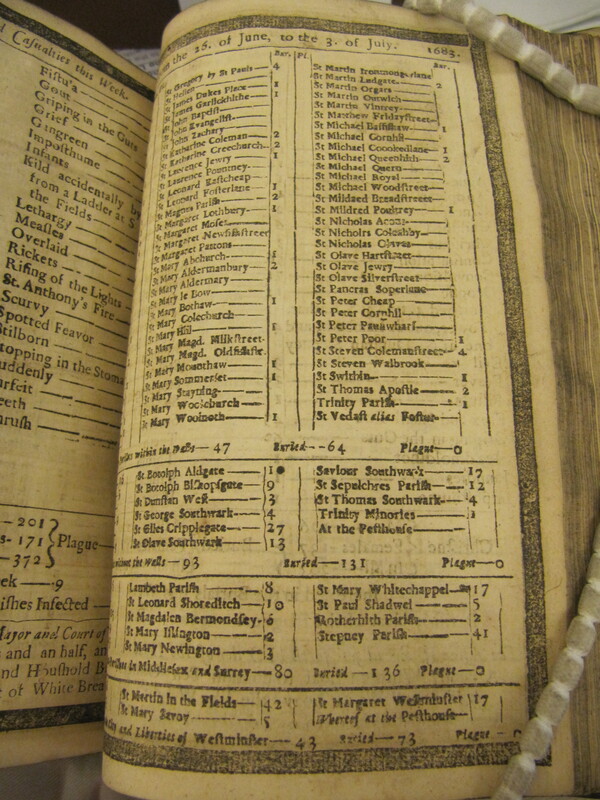 d Casualties this Week.
Fistu'a
Gout
Griping in the Guts
Grief
Gangreen
Imposthume
Infants
Kild accidentally by
from a Ladder at S
the Fields
Lethargy
Measles
Overlaid
Rickets
Rising of the Lights
St. Anthony's Fire
Scurvy
Spotted Feavor
Stilborn
topping in the Stoma
uddenly
urfeit
eeth
hrush
201
171 Plague
372
eek 9
ishes Infected
Mayor and Court of
and an half, an
nd Houshold B
e of White Brea
the 26. of June, to the 3. of July. 1683.
Bur. Pl.
St Gregory by St Pauls 4
St Hellen
St James Dukes Place 1
St James Garlickhithe 1
St John Baptist
St John Evangelist
St John Zachary
St Katharine Coleman 2
St Katharine Creechurch 2
St Lawrence Jewry 1
St Laurence Pountney
St Leonard Eastcheap
St Leonard Fosterlane
St Magnus Parish
St Margaret Lothbury 1
St Margaret Moses
St Margaret Newfishstreet
St Margaret Pattons
St Mary Abchurch
St Mary Aldermanbury 2
St Mary Aldermary
St Mary le Bow
St Mary Bothaw 1
St Mary Colechurch
St Mary Hill
St Mary Magd. Milkstreet
St Mary Magd. Oldfishstr.
St Mary Mounthaw 1
St Mary Sommerset 1
St Mary Stayning
St Mary Woolchurch
St Mary Woolnoth 1
Bur.
St Martin Ironmongerlane
St Martin Ludgate 2
St Martin Orgars
St Martin Outwich
St Martin Vintrey
St Matthew Fridaystreet
St Michael Bassishaw 1
St Michael Cornhil
St Michael Crookedlane 1
St Michael Queenhith 2
St Michael Quern
St Michael Royal
St Michael Woodstreet
St Mildred Breadstreet
St Mildred Poultrey 1
St Nicholas Acons
St Nicholas Coleabby
St Nicholas Olaves
St Olave Hartstreet
St Olave Jewry
St Olave Silverstreet
St Pancras Soperlane
St Peter Cheap
St Peter Cornhil
St Peter Paulswharf
St Peter Poor 1
St Steven Colemanstreet 4
St Steven Walbrook
St Swithin 1
St Thomas Apostle 2
Trinity Parish 1
St Vedast alias Foster
within the Walls 47 Buried 64 Plague 0
St Botolph Aldgate
St Botolph Bishopsgate 9
St Dunstan West 3
St George Southwark 4
St Giles Cripplegate 27
St Olave Southwark 13
Saviour Southwark 17
St Sepulchres Parish 12
St Thomas Southwark 4
Trinity Minories
At the Pesthouse
without the Walls 93 Buried 131 Plague 0
Lambeth Parish 8
St Leonard Shoreditch 10
St Magdalen Bermondsey 6
St Mary Islington 2
St Mary Newington 3
St Mary Whitechappel 17
St Paul Shadwel 5
Rotherhith Parish 2
Stepney Parish 41
in Middlesex and Surrey 80 Buried 136 Plague 0
St Martin in the Fields 42
St Mary Savoy 5
St Margaret Westminster 17
Whereof at the Pesthouse
City and Liberties of Westminster 43 Buried 73 Plague 0